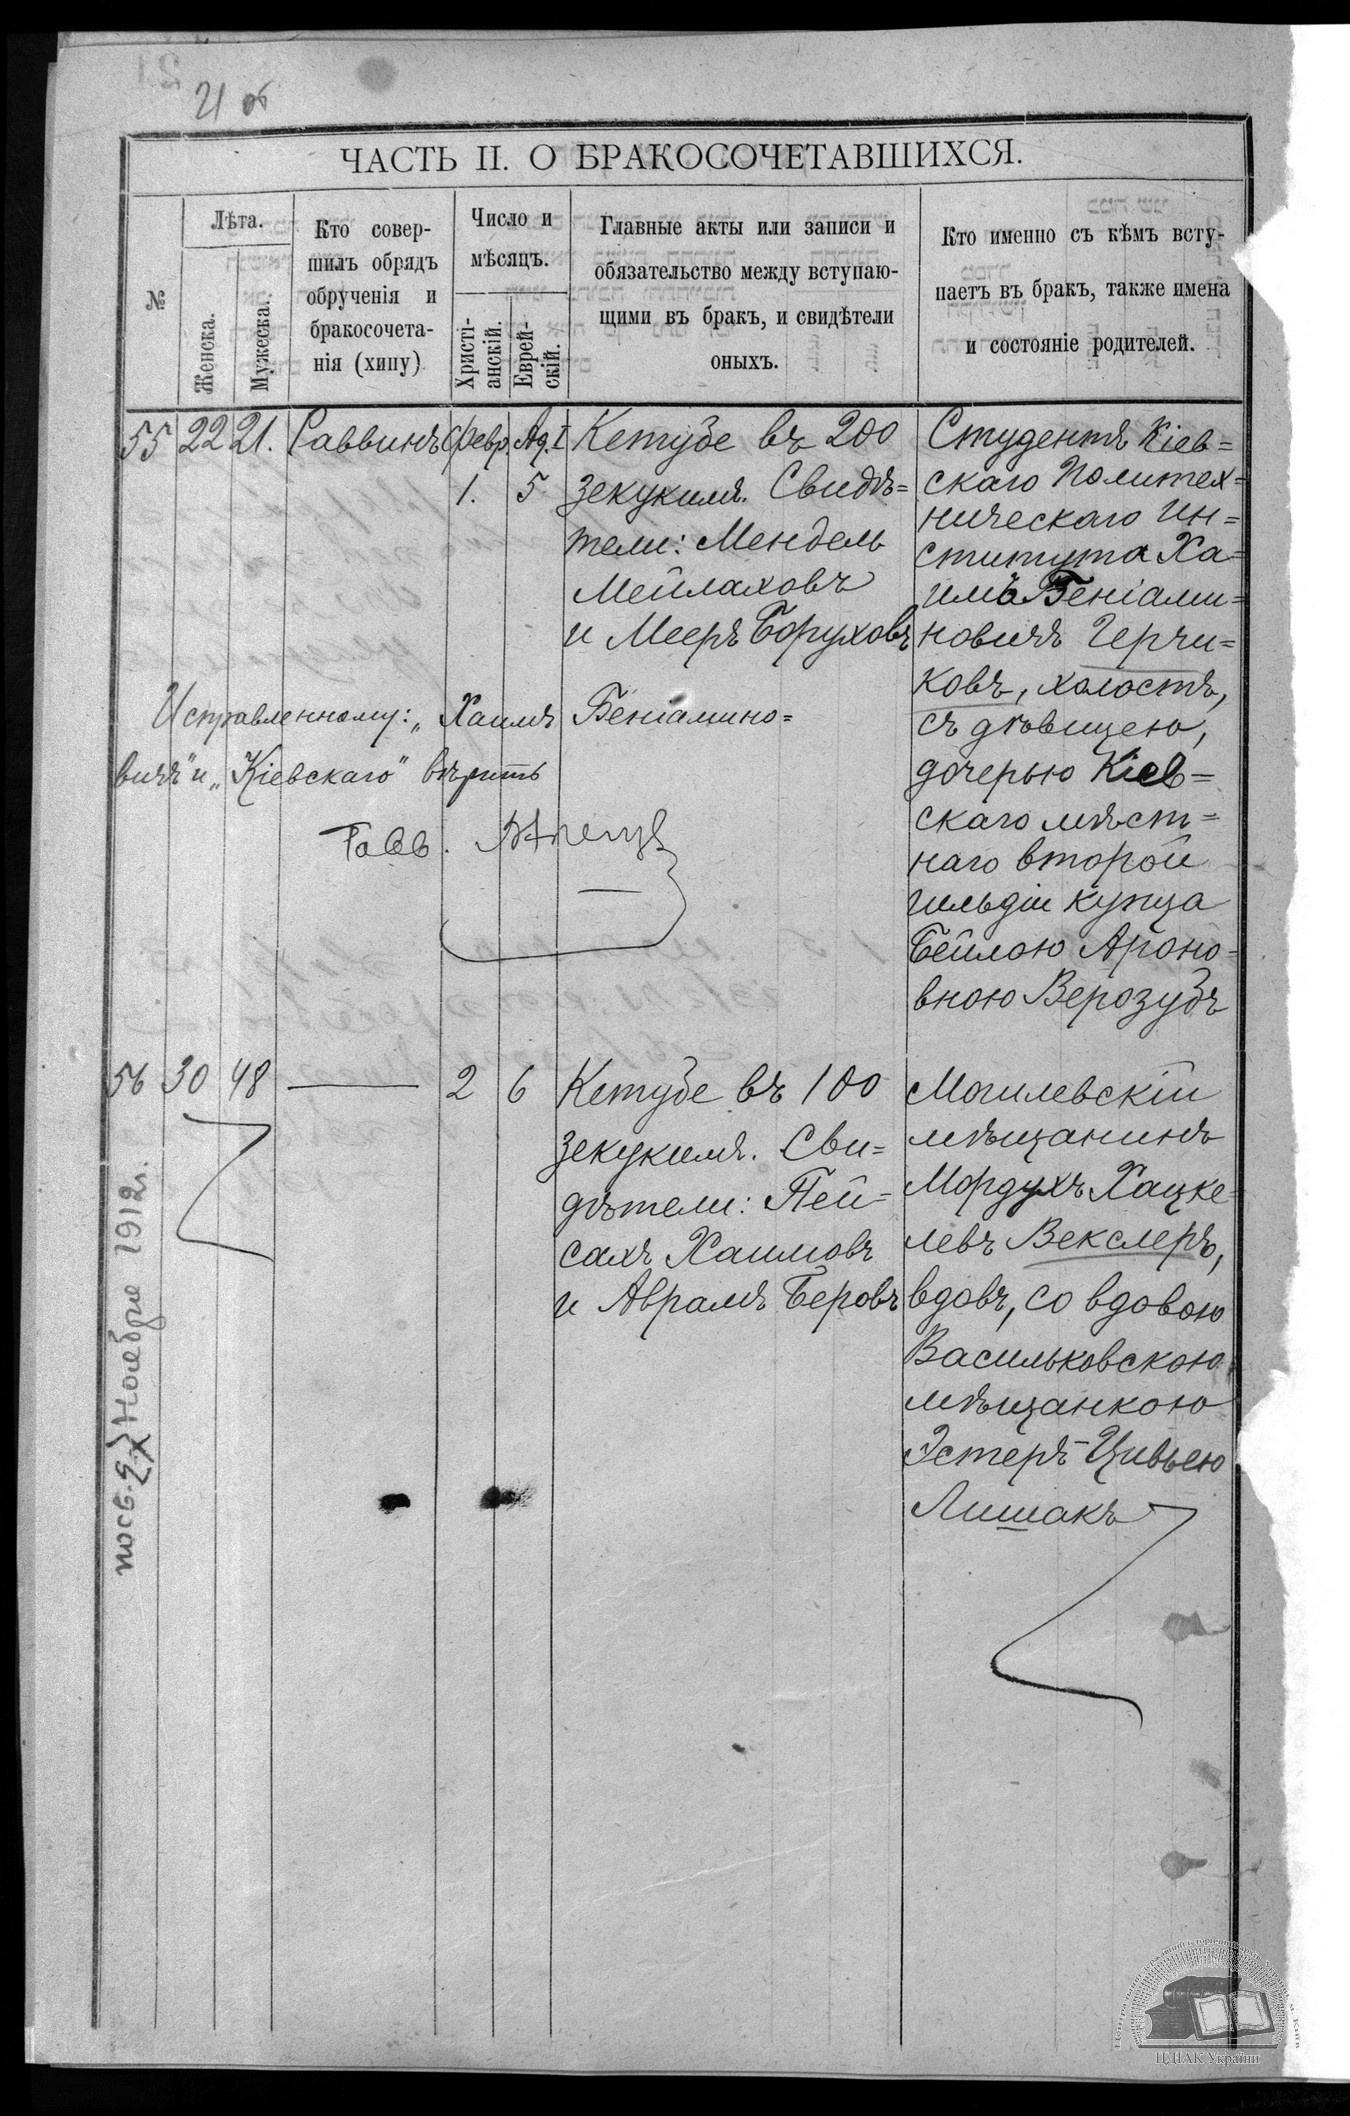 21 об
ЧАСТЬ II. О БРАКОСОЧЕТАВШИХСЯ.
№
Лѣта.
Женска.
Мужеска.
Кто совер-
шилъ обрядъ
обрученія и
бракосочета-
нія (хипу)
Число и
мѣсяцъ.
Христі-
анскій.
Еврей-
скій.
Главные акты или записи и
обязательство между вступаю-
щими въ бракъ, и свидѣтели
оныхъ.
Кто именно съ кѣмъ всту-
паетъ въ бракъ, также имена
и состояніе родителей.
55 22 21. Раввинъ Февр. Ад. I
1. 5
Кетубе въ 200
зекукимъ. Свидѣ=
тели: Мендель
Мейлаховъ
и Мееръ Боруховъ
Студентъ Кіев=
скаго Политех=
ническаго Ин=
ститута Ха=
имъ Беніами=
новичъ Герчи=
ковъ, холостъ,
съ дѣвицею,
дочерью Кіев=
скаго мѣст=
наго второй
гильдіи купца
Бейлою Ароно=
вною Верозубъ
Исправленному: „Хаимъ Беніамино=
вичъ" и „Кіевскаго" вѣрить
Равв.
56 30 48 — 2 6
Кетубе въ 100
зекукимъ. Сви=
дѣтели: Пей=
сахъ Хаимовъ
и Аврамъ Беровъ
Могилевскій
мѣщанинъ
Мордухъ Хацке=
левъ Векслеръ,
вдовъ, со вдовою
Васильковскою
мѣщанкою
Эстеръ-Цивьею
Лишакъ
Ноября 1912 г.
ЦДІАК України